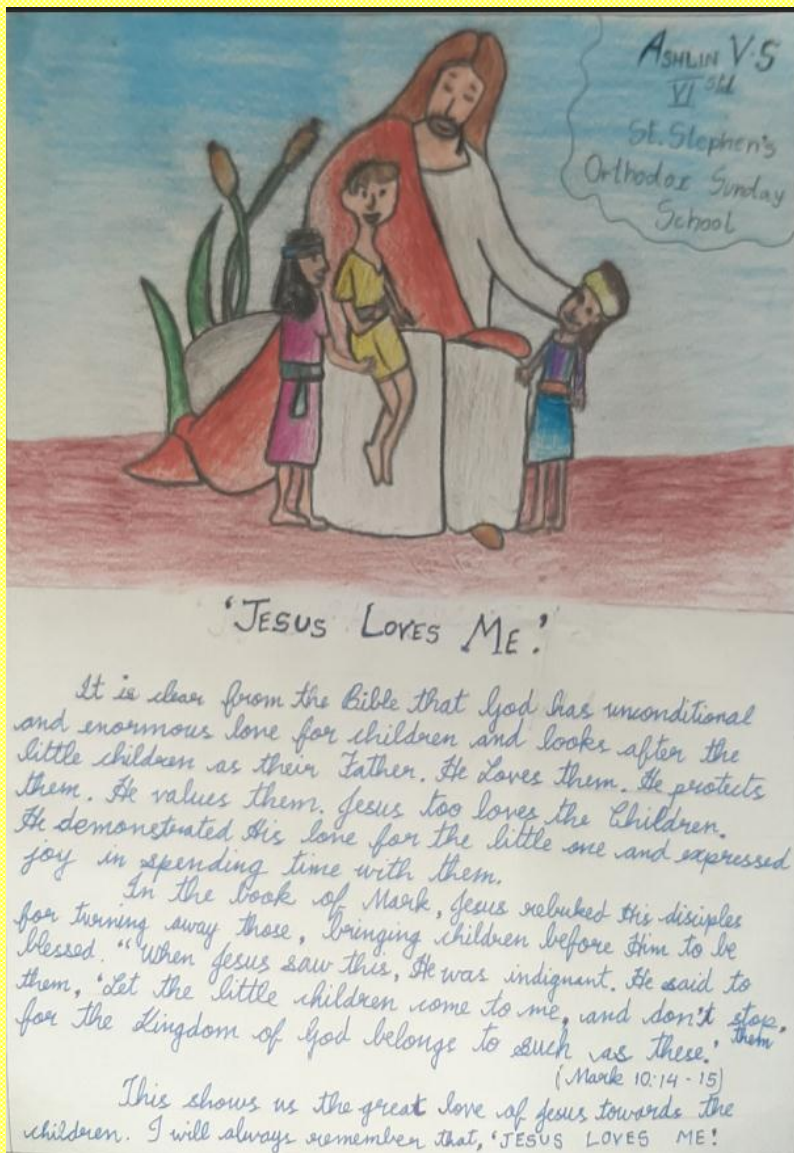 ASHLIN V.S
VI std
St. Stephen's
Orthodox Sunday
School
'JESUS LOVES ME!'
It is clear from the Bible that God has unconditional
and enormous love for children and looks after the
little children as their Father. He Loves them. He protects
them. He values them. Jesus too loves the Children.
He demonstrated His love for the little one and expressed
joy in spending time with them.
In the book of Mark, Jesus rebuked His disciples
for turning away those, bringing children before Him to be
blessed. "When Jesus saw this, He was indignant. He said to
them, 'Let the little children come to me, and don't stop them,
for the Kingdom of God belongs to such as these.'
(Mark 10:14-15)
This shows us the great love of Jesus towards the
children. I will always remember that, 'JESUS LOVES ME!